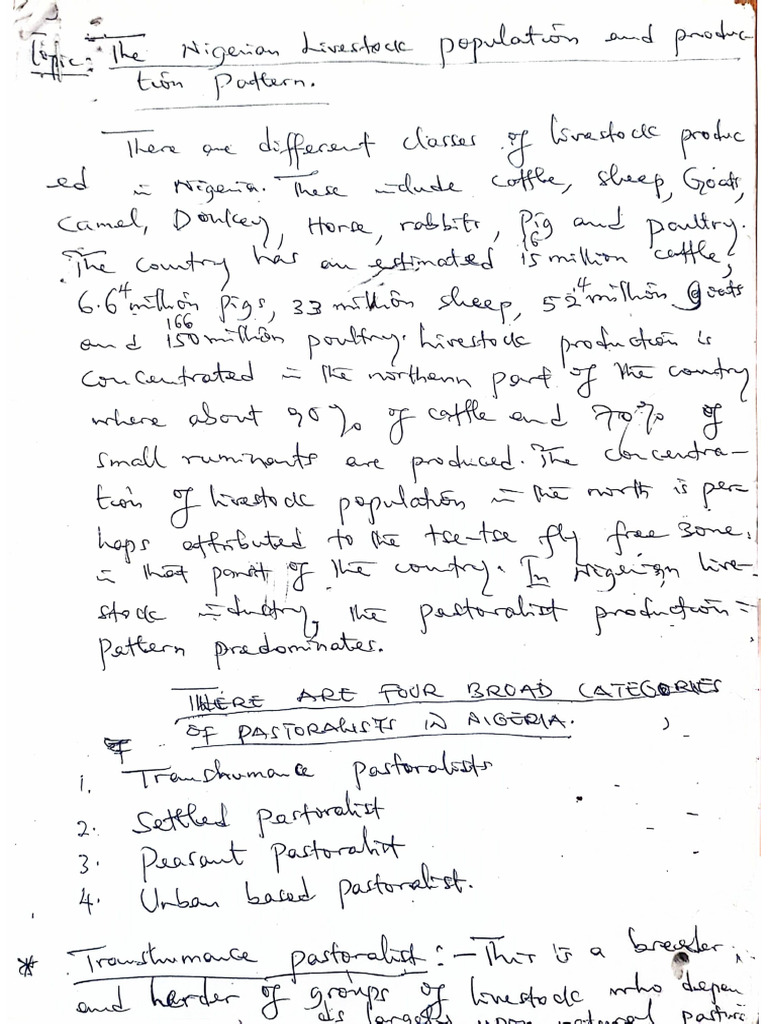 Topic:- The Nigerian Livestock population and produc-
tion Pattern.
There are different classes of livestock produc
ed in Nigeria. These include cattle, sheep, Goats,
Camel, Donkey, Horse, rabbits, Pig and poultry.
The country has an estimated 15 16 million cattle,
6.6 4 million pigs, 33 million sheep, 52 4 million goats
and 150 166 million poultry. Livestock production is
concentrated in the northern part of the country
where about 90% of cattle and 70% of
small ruminants are produced. The concentra-
tion of livestock population in the north is per-
haps attributed to the tse-tse fly free zone.
in that part of the country. In Nigerian live-
stock industry, the pastoralist production
pattern predominates.
THERE ARE FOUR BROAD CATEGORIES
OF PASTORALISTS IN NIGERIA.
1. Transhumance pastoralists
2. Settled pastoralist
3. Peasant pastoralist
4. Urban based pastoralist.
* Transhumance pastoralist:- This is a breeder
and herder of groups of livestock who depen
ds largely upon natural pasture